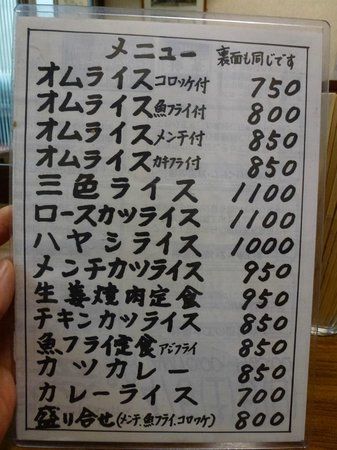 メニュー 裏面も同じです
オムライスコロッケ付 750
オムライス魚フライ付 800
オムライスメンチ付 850
オムライスカキフライ付 850
三色ライス 1100
ロースカツライス 1100
ハヤシライス 1000
メンチカツライス 950
生姜焼肉定食 950
チキンカツライス 850
魚フライ定食アジフライ 850
カツカレー 850
カレーライス 700
盛り合せ(メンチ.魚フライ.コロッケ) 800